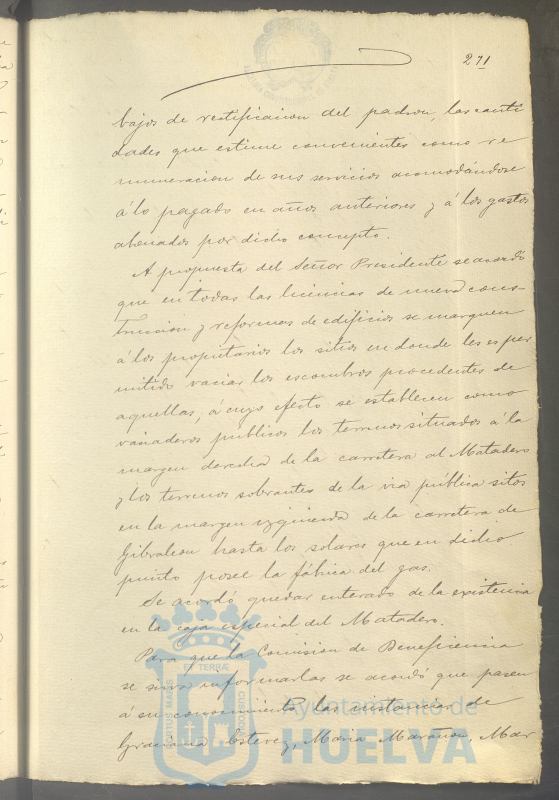 271
bajos de rectificacion del padron, las canti
dades que estime convenientes como re
muneracion de sus servicios acomodándose
á lo pagado en años anteriores y á los gastos
abonados por dicho concepto.
A propuesta del Señor Presidente se acordó
que en todas las licencias de nueva cons-
truccion y reformas de edificios se marquen
á los propietarios los sitios en donde les es per
mitido vaciar los escombros procedentes de
aquellas, á cuyo efecto se establecen como
vaciaderos publicos los terrenos situados á la
margen derecha de la carretera al Matadero
y los terrenos sobrantes de la via pública sitos
en la margen izquierda de la carretera de
Gibraleon hasta los solares que en dicho
punto posee la fábrica del gas.
Se acordó quedar enterado de la existencia
en la caja especial del Matadero.
Para que la Comision de Beneficencia
se sirva informarlas se acordó que pasen
á su conocimiento las instancias de
Graciana Estevez, Maria Marañon, Mar
Ayuntamiento de
HUELVA